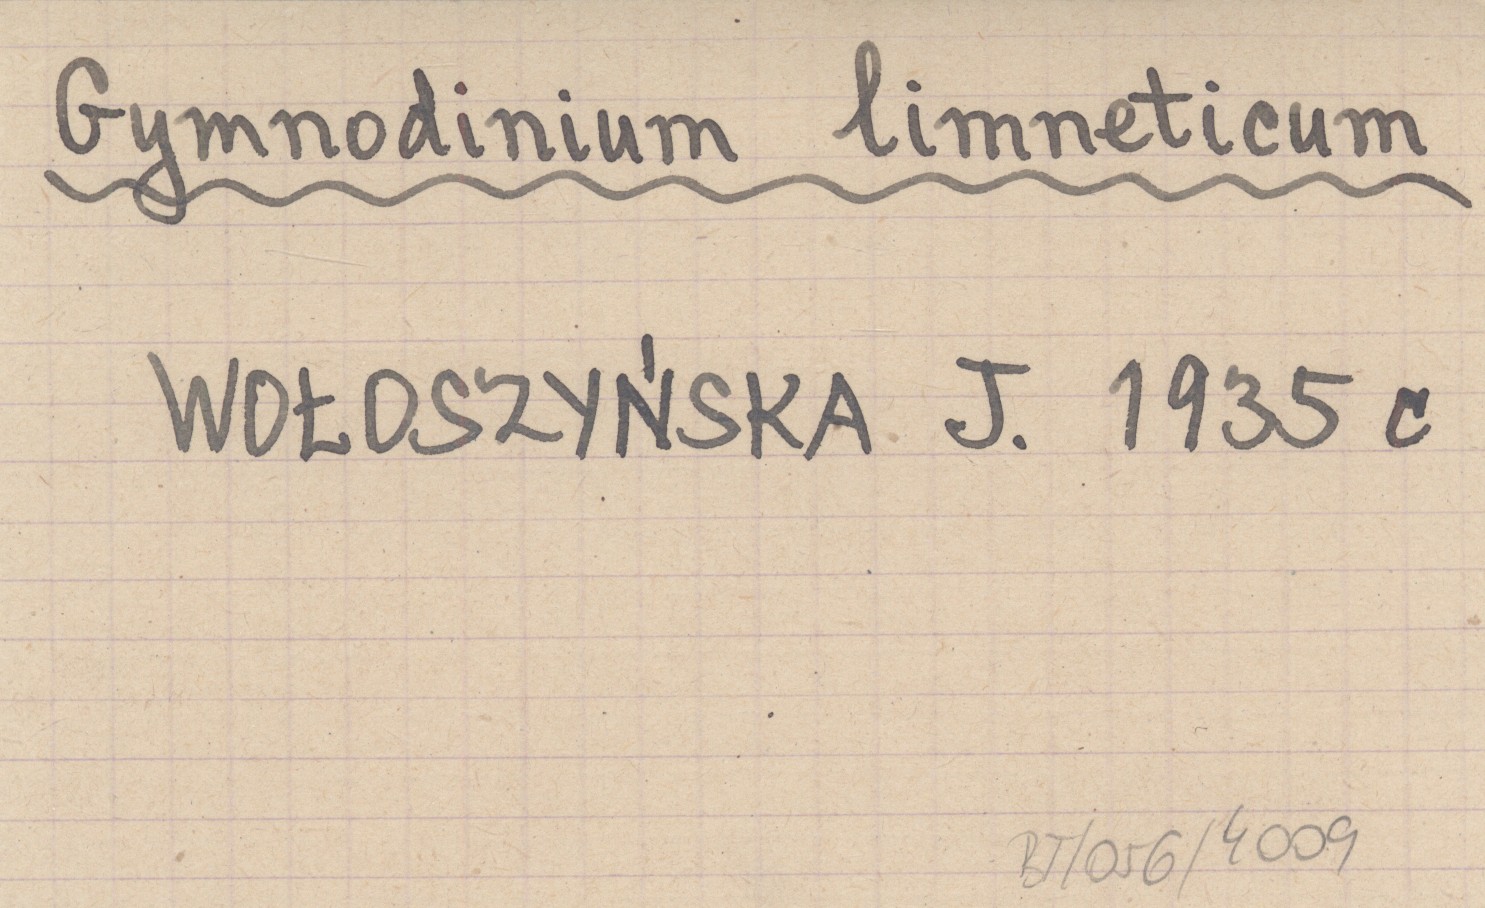 Gymnodinium limneticum
WOŁOSZYŃSKA J. 1935 c
BT/056/4009